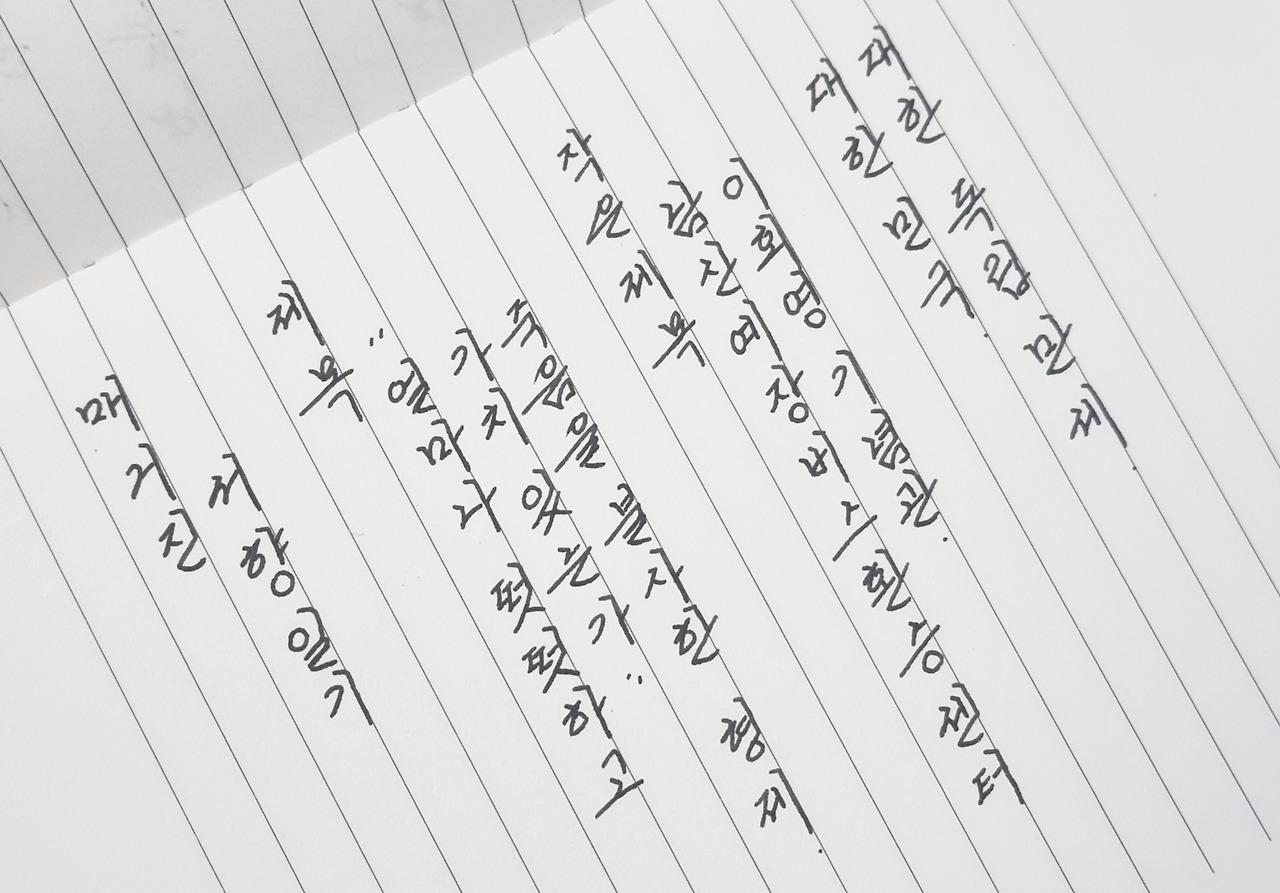 매거진
저항일기
제목
"얼마나 떳떳하고
가치 있는가"
죽음을 불사한 형제.
작은제목
남산예장버스환승센터
이회영 기념관.
대한민국.
대한 독립만세.